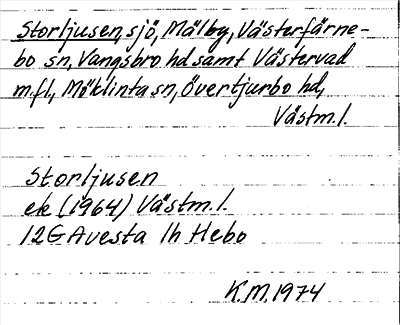 Storljusen, sjö, Mälby, Västerfärne-
bo sn, Vangsbro hd samt Västervad
m.fl., Möklinta sn, Övertjurbo hd,
Västm.l.
Storljusen
ek (1964) Västm.l.
12G Avesta 1h Hebo
K.M. 1974